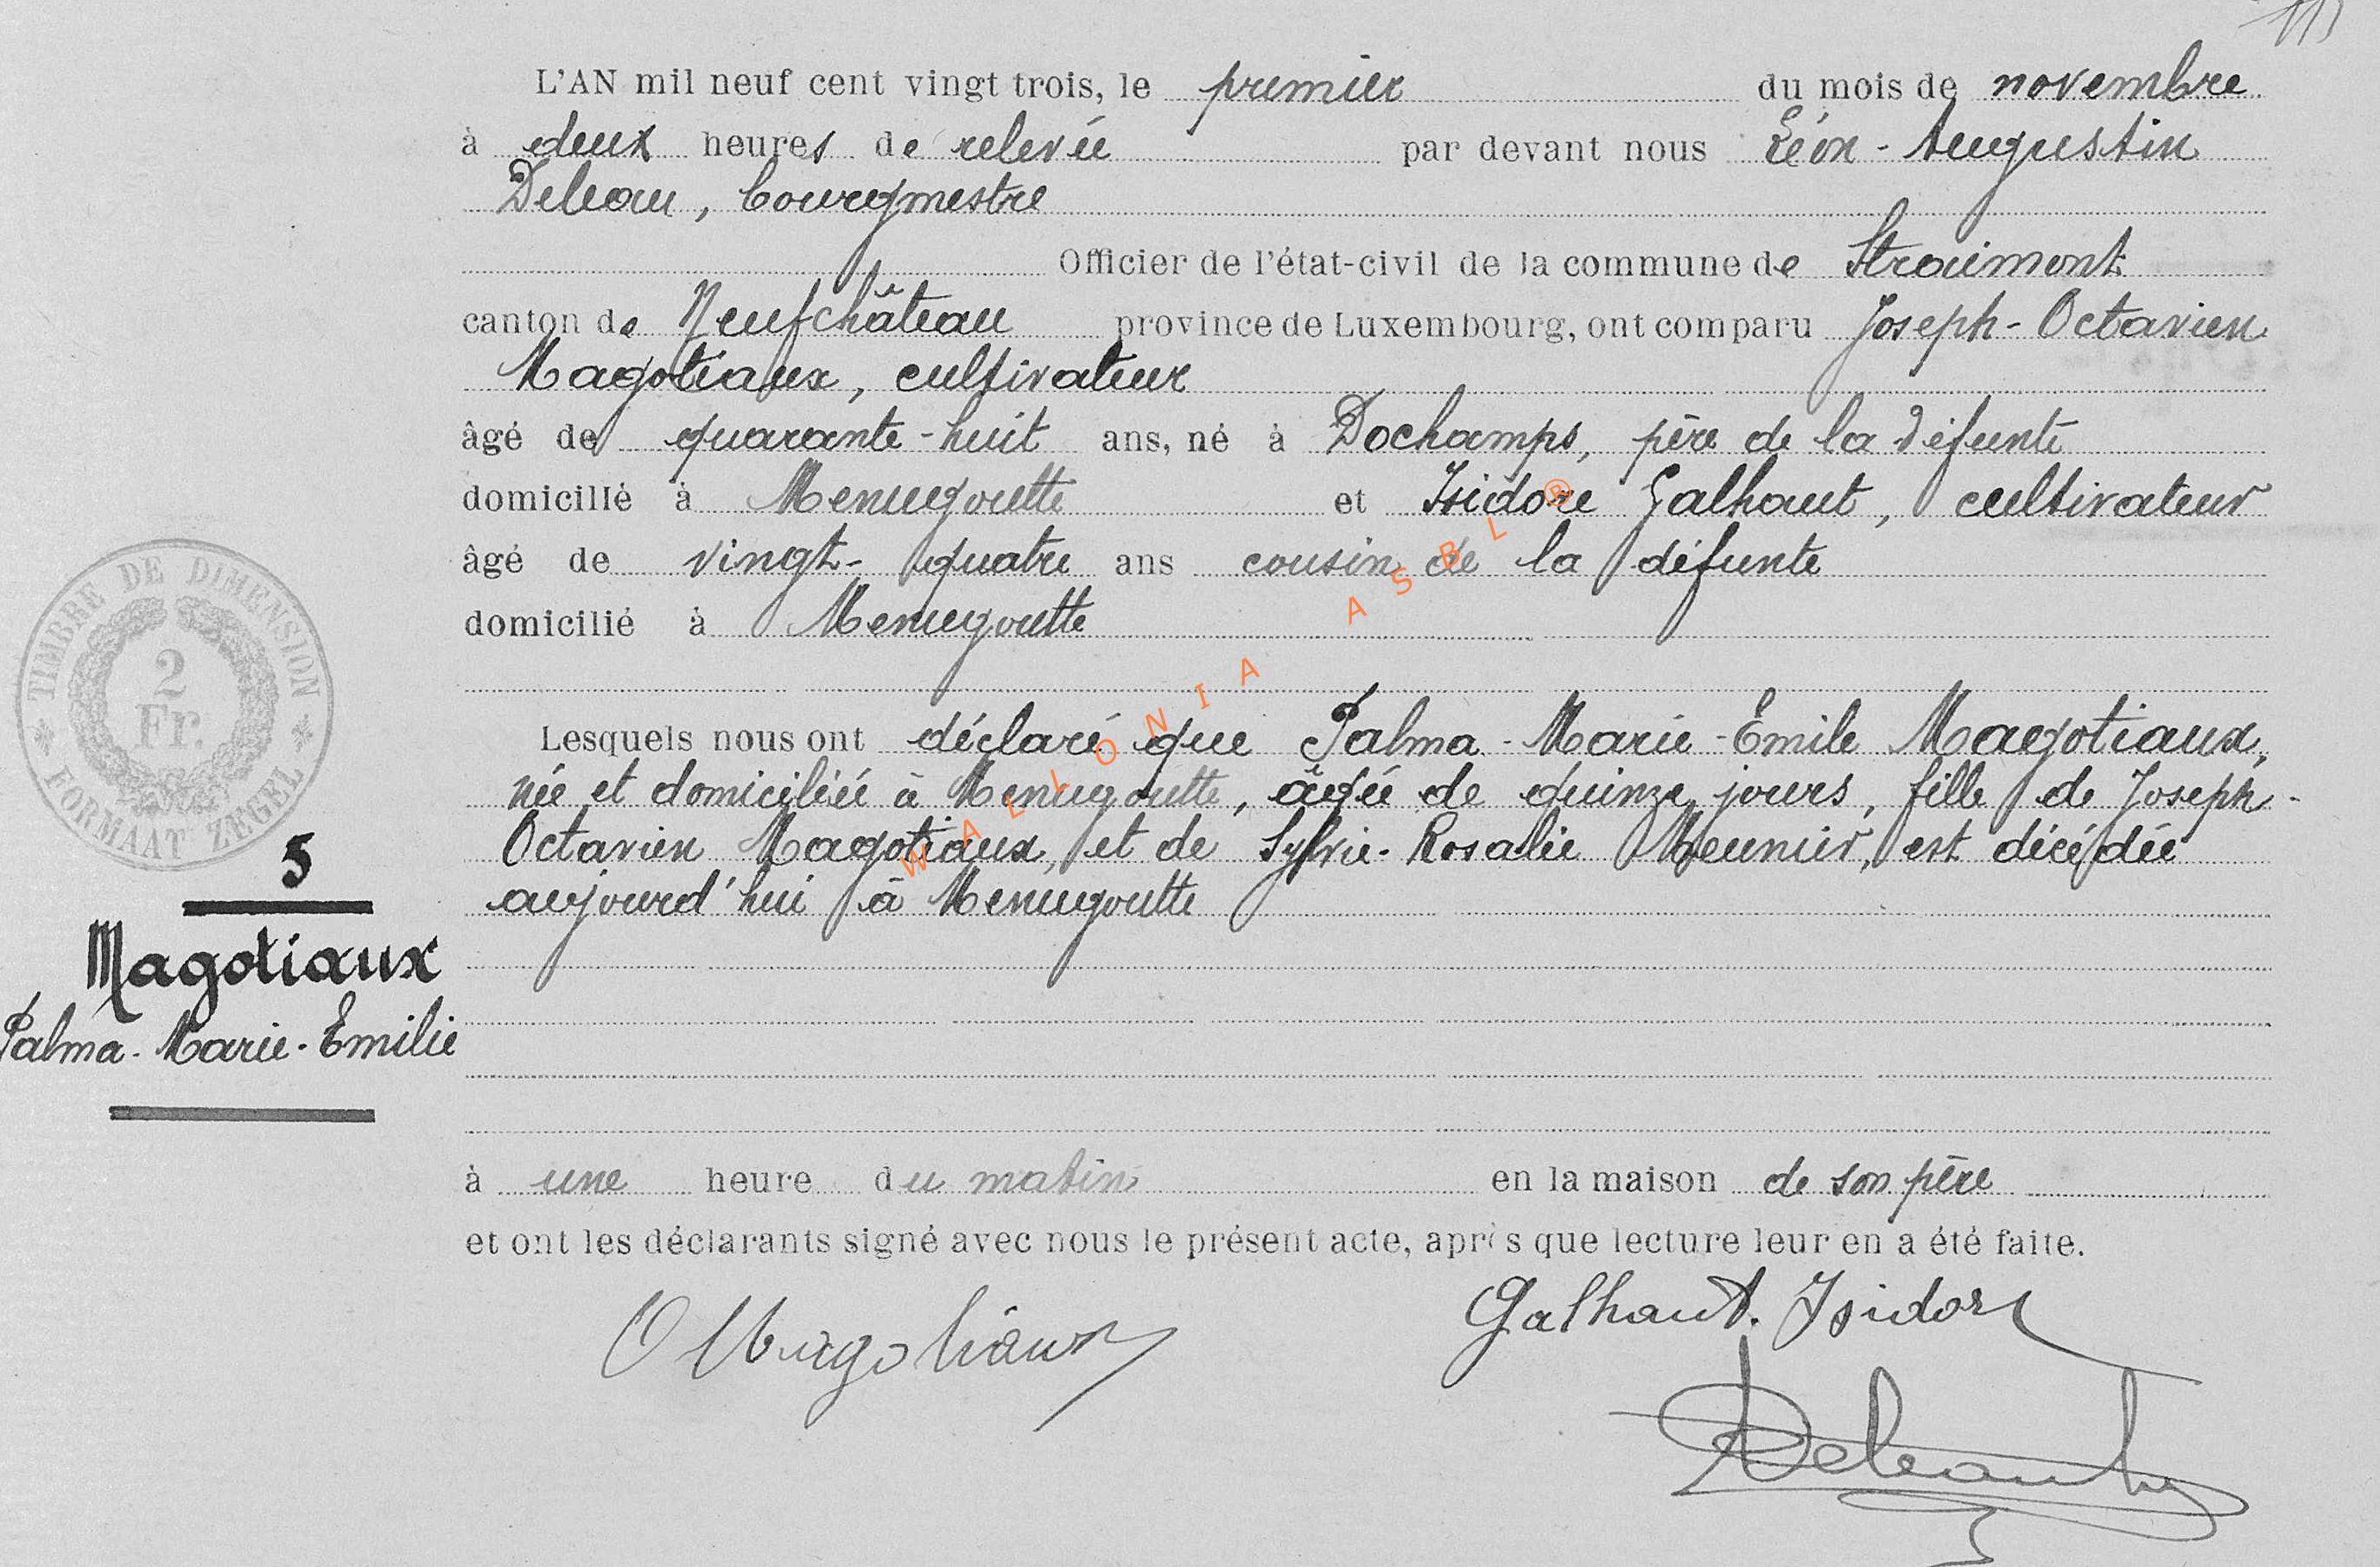 L'AN mil neuf cent vingt trois, le premier du mois de novembre
à deux heures de relevée par devant nous Léon-Augustin
Deleau, bourgmestre
Officier de l'état-civil de la commune de Straimont
canton de Neufchâteau province de Luxembourg, ont comparu Joseph-Octavien
Magotiaux, cultivateur
âgé de quarante-huit ans, né à Dochamps, père de la défunte
domicilié à Menugoutte et Isidore Galhaut, cultivateur
âgé de vingt-quatre ans cousin de la défunte
domicilié à Menugoutte
Lesquels nous ont déclaré que Palma-Marie-Emile Magotiaux,
née et domiciliée à Menugoutte, âgée de quinze jours, fille de Joseph-
Octavien Magotiaux, et de Sylvie-Rosalie Meunier, est décédée
aujourd'hui à Menugoutte
à une heure du matin en la maison de son père
et ont les déclarants signé avec nous le présent acte, après que lecture leur en a été faite.
O Magotiaux
Galhaut. Isidore
TIMBRE DE DIMENSION
2
Fr.
FORMAAT ZEGEL
5
Magotiaux
Palma-Marie-Emilie
WALLONIA ASBL ®